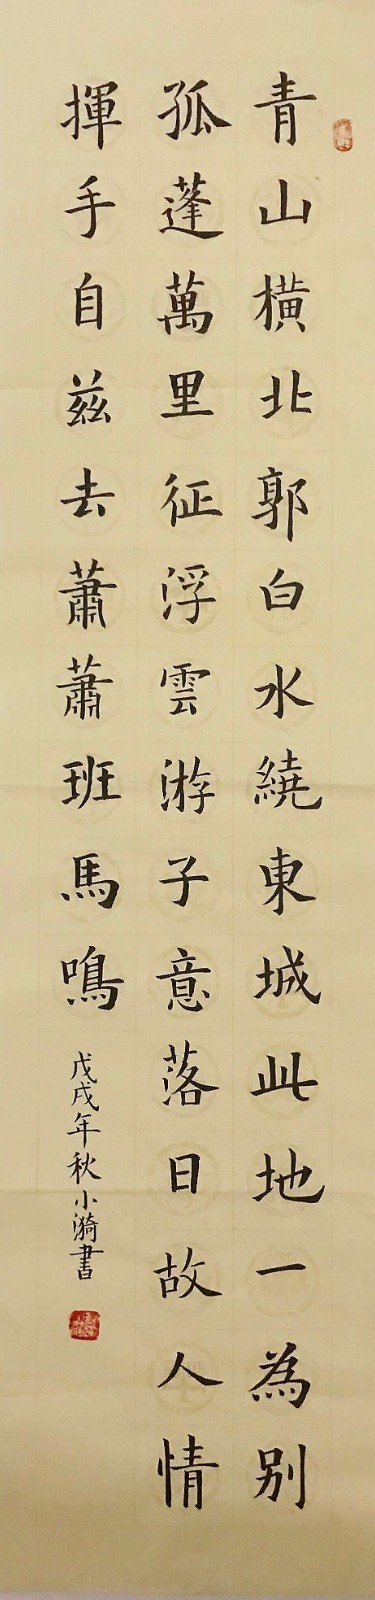 青山橫北郭白水繞東城此地一為別
孤蓬萬里征浮雲游子意落日故人情
揮手自茲去蕭蕭班馬鳴
戊戌年秋小漪書